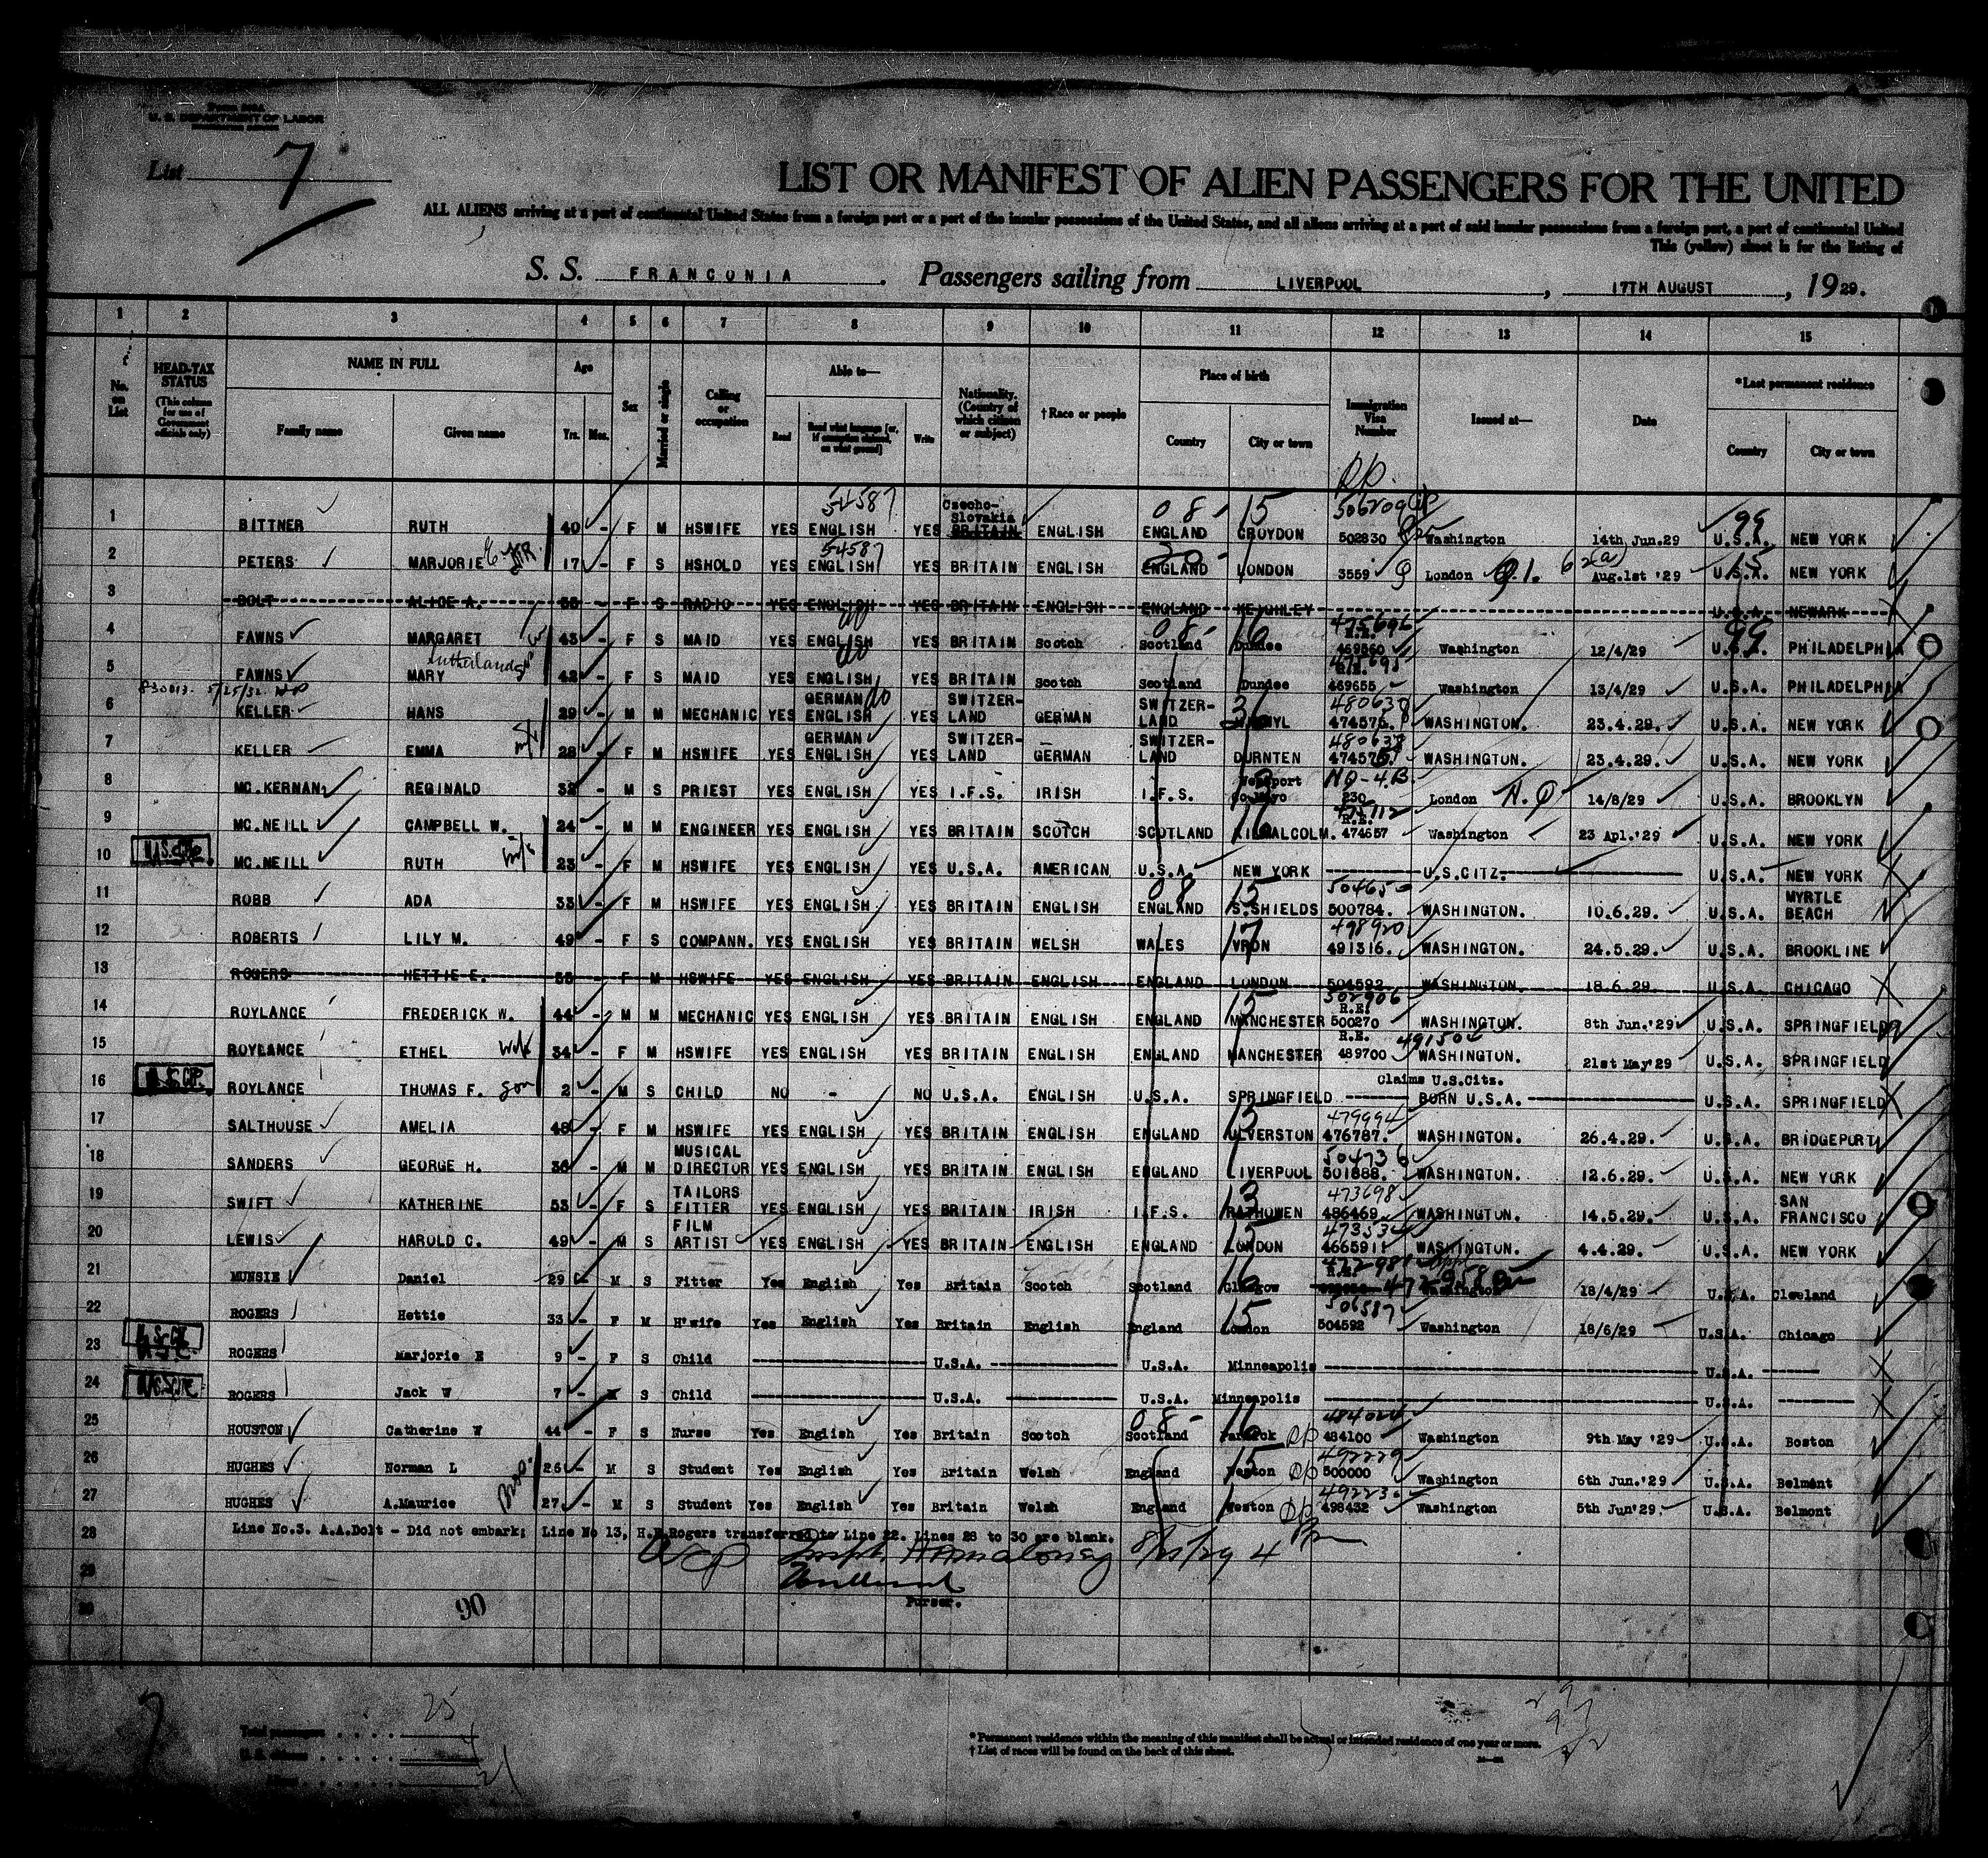 Form 500A
U. S. DEPARTMENT OF LABOR
List 7
LIST OR MANIFEST OF ALIEN PASSENGERS FOR THE UNITED
ALL ALIENS arriving at a port of continental United States from a foreign port or a port of the insular possessions of the United States, and all aliens arriving at a port of said insular possessions from a foreign port, a port of continental United
This (yellow) sheet is for the listing of
S. S. FRANCONIA. Passengers sailing from LIVERPOOL, 17TH AUGUST, 1929.
1 2 3 4 5 6 7 8 9 10 11 12 13 14 15
No. on List
HEAD-TAX STATUS (This column for use of Government officials only)
NAME IN FULL Family name Given name
Age Yrs. Mos.
Sex
Married or single
Calling or occupation
Able to— Read Read what language [or, if exemption claimed, on what ground] Write
Nationality. (Country of which citizen or subject)
†Race or people
Place of birth Country City or town
Immigration Visa Number
Issued at—
Date
*Last permanent residence Country City or town
1 BITTNER RUTH 40 - F M HSWIFE YES ENGLISH 54587 YES Czecho-Slovakia BRITAIN ENGLISH ENGLAND CROYDON 506209 502830 Washington 14th Jun.29 U.S.A. NEW YORK
2 PETERS MARJORIE 17 - F S HSHOLD YES ENGLISH 54587 YES BRITAIN ENGLISH ENGLAND LONDON 3559 London Aug.1st '29 U.S.A. NEW YORK
3 BOLT ALICE A. 55 - F S RADIO YES ENGLISH YES BRITAIN ENGLISH ENGLAND KEIGHLEY U.S.A. NEWARK
4 FAWNS MARGARET 43 - F S MAID YES ENGLISH YES BRITAIN Scotch Scotland Dundee 475696 R.E. 469560 Washington 12/4/29 U.S.A. PHILADELPHIA
5 FAWNS MARY Sutherland 42 - F S MAID YES ENGLISH YES BRITAIN Scotch Scotland Dundee 475695 469655 Washington 13/4/29 U.S.A. PHILADELPHIA
6 KELLER HANS 29 - M M MECHANIC YES GERMAN ENGLISH YES SWITZER-LAND GERMAN SWITZER-LAND 474575. WASHINGTON. 23.4.29. U.S.A. NEW YORK
7 KELLER EMMA 28 - F M HSWIFE YES GERMAN ENGLISH YES SWITZER-LAND GERMAN SWITZER-LAND DURNTEN WASHINGTON. 23.4.29. U.S.A. NEW YORK
8 MC.KERNAN REGINALD 32 - M S PRIEST YES ENGLISH YES I.F.S. IRISH I.F.S. Newport Co.Mayo NQ-4B 230 London N.Q 14/8/29 U.S.A. BROOKLYN
9 MC.NEILL CAMPBELL W. 24 - M M ENGINEER YES ENGLISH YES BRITAIN SCOTCH SCOTLAND KILMALCOLM. R.E. 474657 Washington 23 Apl.'29 U.S.A. NEW YORK
10 MC.NEILL RUTH 23 - F M HSWIFE YES ENGLISH YES U.S.A. AMERICAN U.S.A. NEW YORK U.S.CITZ. U.S.A. NEW YORK
11 ROBB ADA 33 - F M HSWIFE YES ENGLISH YES BRITAIN ENGLISH ENGLAND S.SHIELDS 504650 500784. WASHINGTON. 10.6.29. U.S.A. MYRTLE BEACH
12 ROBERTS LILY M. 49 - F S COMPANN. YES ENGLISH YES BRITAIN WELSH WALES VRON 498920 491316. WASHINGTON. 24.5.29. U.S.A. BROOKLINE
13 ROGERS HETTIE E. 33 - F M HSWIFE YES ENGLISH YES BRITAIN ENGLISH ENGLAND LONDON 504592 WASHINGTON. 18.6.29. U.S.A. CHICAGO
14 ROYLANCE FREDERICK W. 44 - M M MECHANIC YES ENGLISH YES BRITAIN ENGLISH ENGLAND MANCHESTER 502906 R.E. 500270 WASHINGTON. 8th Jun.'29 U.S.A. SPRINGFIELD
15 ROYLANCE ETHEL 34 - F M HSWIFE YES ENGLISH YES BRITAIN ENGLISH ENGLAND MANCHESTER R.E. 489700 WASHINGTON. 21st May'29 U.S.A. SPRINGFIELD
16 ROYLANCE THOMAS F. son 2 - M S CHILD NO - NO U.S.A. ENGLISH U.S.A. SPRINGFIELD Claims U.S.Citz. BORN U.S.A. U.S.A. SPRINGFIELD
17 SALTHOUSE AMELIA 48 - F M HSWIFE YES ENGLISH YES BRITAIN ENGLISH ENGLAND ULVERSTON 479994 476787. WASHINGTON. 26.4.29. U.S.A. BRIDGEPORT
18 SANDERS GEORGE H. 36 - M M MUSICAL DIRECTOR YES ENGLISH YES BRITAIN ENGLISH ENGLAND LIVERPOOL 504736 501888. WASHINGTON. 12.6.29. U.S.A. NEW YORK
19 SWIFT KATHERINE 53 - F S TAILORS FITTER YES ENGLISH YES BRITAIN IRISH I.F.S. RATHOWEN 473698 486469. WASHINGTON. 14.5.29. U.S.A. SAN FRANCISCO
20 LEWIS HAROLD C. 49 - M S FILM ARTIST YES ENGLISH YES BRITAIN ENGLISH ENGLAND LONDON 466591 WASHINGTON. 4.4.29. U.S.A. NEW YORK
21 MUNSIE Daniel 29 - M S Fitter Yes English Yes Britain Scotch Scotland Glasgow Washington 18/4/29 U.S.A. Cleeland
22 ROGERS Hettie 33 - F M H'wife Yes English Yes Britain English England London 506587 504592 Washington 18/6/29 U.S.A. Chicago
23 ROGERS Marjorie E 9 - F S Child U.S.A. U.S.A. Minneapolis U.S.A.
24 ROGERS Jack W 7 - M S Child U.S.A. U.S.A. Minneapolis U.S.A.
25 HOUSTON Catherine W 44 - F S Nurse Yes English Yes Britain Scotch Scotland 484100 Washington 9th May '29 U.S.A. Boston
26 HUGHES Norman L 26 - M S Student Yes English Yes Britain Welsh England Weston 492229 500000 Washington 6th Jun.'29 U.S.A. Belmont
27 HUGHES A.Maurice 27 - M S Student Yes English Yes Britain Welsh England Weston 492230 498432 Washington 5th Jun'29. U.S.A. Belmont
28 Line No.3. A.A.Bolt - Did not embark; Line No 13, H.E.Rogers transferred to Line 22. Lines 28 to 30 are blank.
29
Purser.
30 90
Total passengers 25
U.S. citizens
Aliens 21
* Permanent residence within the meaning of this manifest shall be actual or intended residence of one year or more.
† List of races will be found on the back of this sheet.